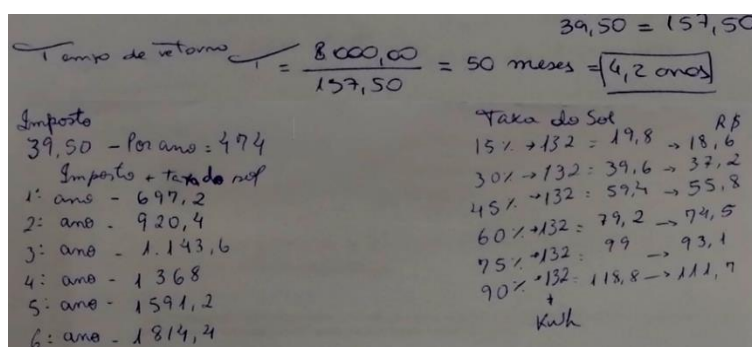 39,50 = 157,50
Tempo de retorno T = 8000,00 / 157,50 = 50 meses = 4,2 anos
Imposto
39,50 - Por ano = 474
Imposto + taxa do sol
1º ano - 697,2
2º ano - 920,4
3º ano - 1.143,6
4º ano - 1 368
5º ano - 1591,2
6º ano - 1814,4
Taxa do Sol R$
15% → 132 = 19,8 → 18,6
30% → 132 = 39,6 → 37,2
45% → 132 = 59,4 → 55,8
60% → 132 = 79,2 → 74,5
75% → 132 = 99 → 93,1
90% → 132 = 118,8 → 111,7
↓
Kwh